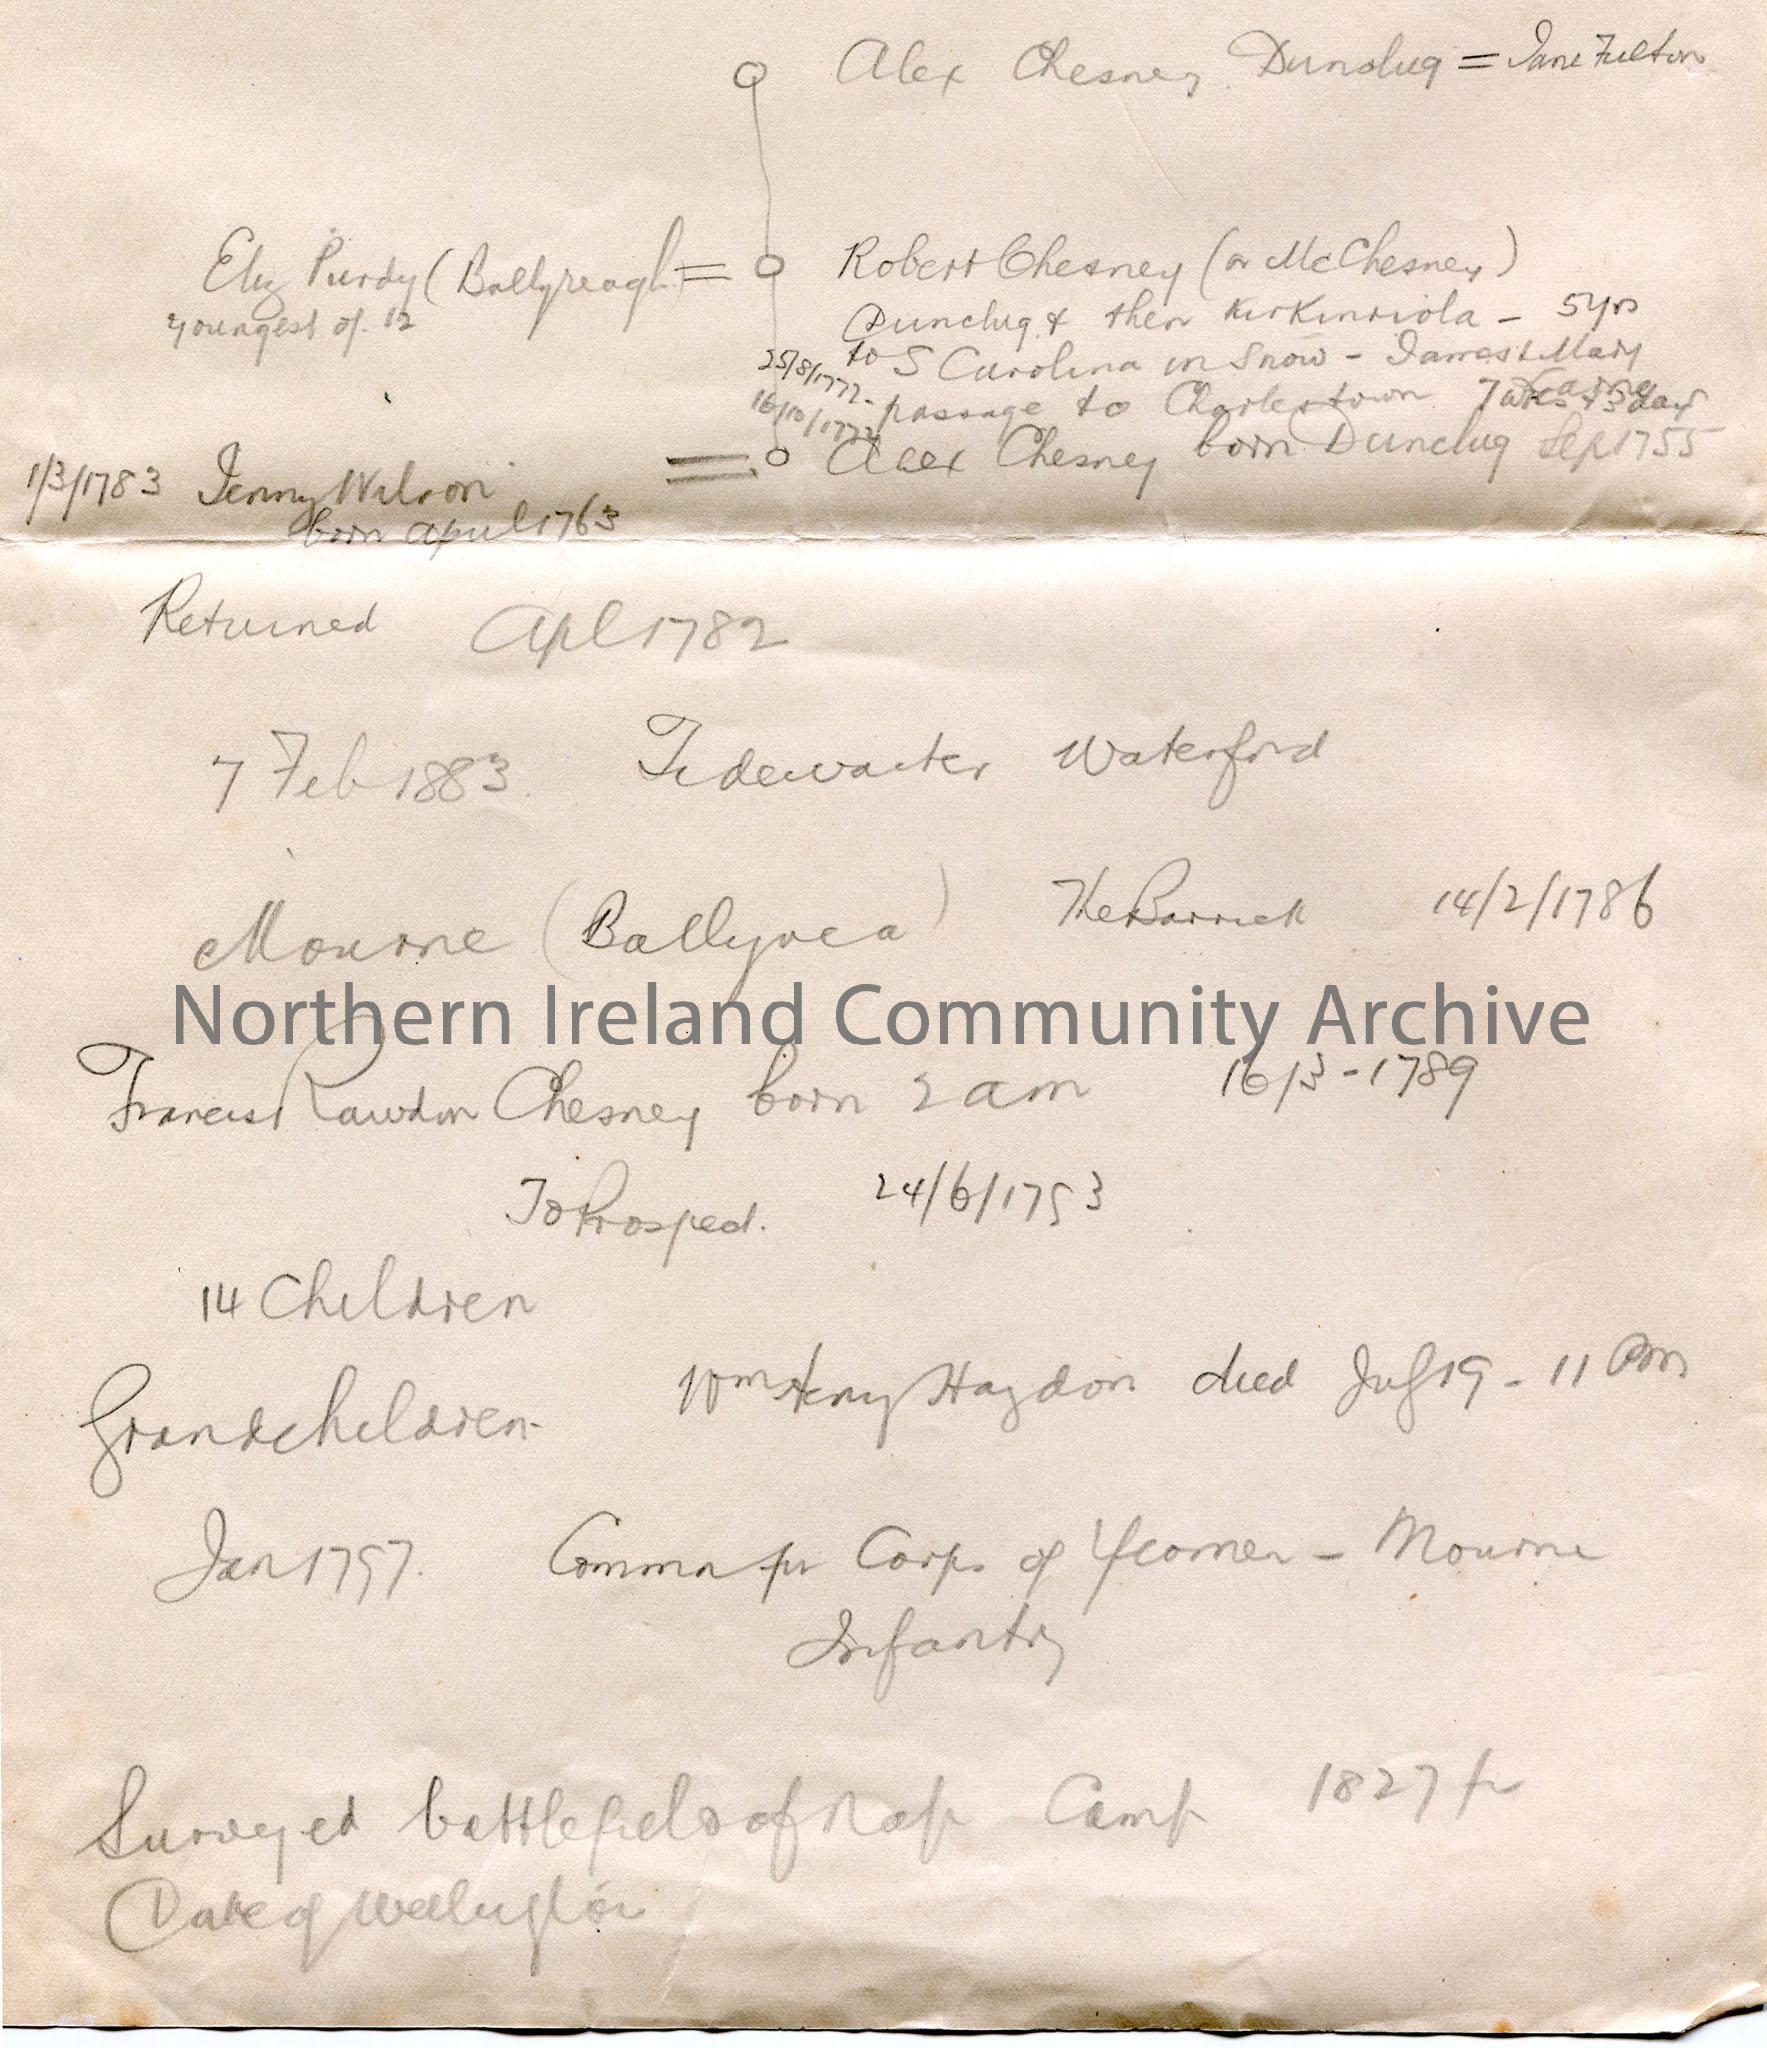 Alex Chesney Dunclug = Jane Fulton
Eliz Purdy (Ballyreagh) = Robert Chesney (or McChesney)
youngest of 12
Dunclug & then Kirkinriola - 5 yrs
25/8/1772 to S Carolina in Snow - James & Mary
16/10/1772 passage to Charlestown 7 wks days
1/3/1783 Jenny Wilson = Alex Chesney born Dunclug Sep 1755
born April 1763
Returned Apl 1782
7 Feb 1883. Tidewaiter Waterford
Mourne (Ballyvea) The Barrack 14/2/1786
Northern Ireland Community Archive
Francis Rawdon Chesney born 2 am 16/3-1789
To Prospect. 24/6/1793
14 Children
Grandchildren Wm Henry Haydon died July 19 - 11 Pm
Jan 1797. Comm for Corps of Yeomen - Mourne
Infantry
Surveyed battlefields of Nap Camp 1827 for
Duke of Wellington